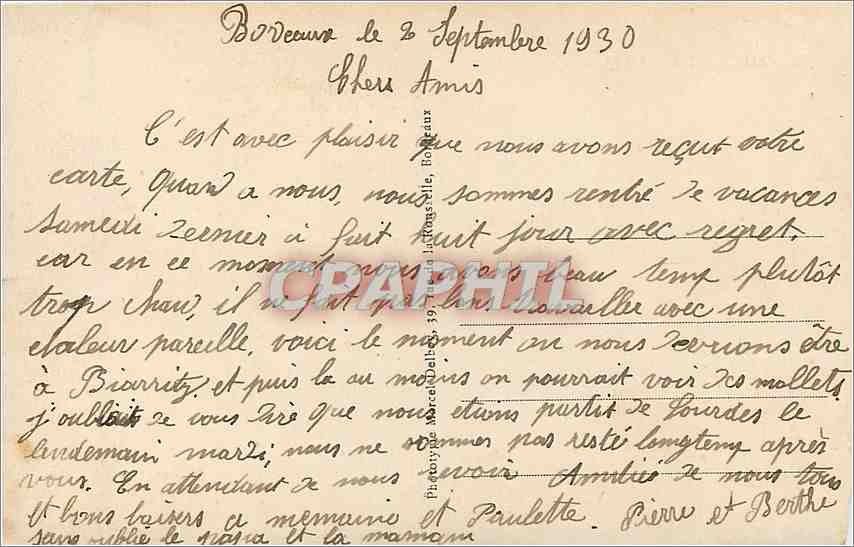 Bordeaux le 2 Septembre 1930
Chers Amis
C'est avec plaisir que nous avons reçut votre
carte, Quand a nous, nous sommes rentré de vacances
samedi dernier à fait huit jour avec regret.
car en ce moment nous avons beau temp plutôt
trop chaud, il ne fait pas bons travailler avec une
chaleur pareille, voici le moment ou nous devrions être
à Biarritz et puis la au moins on pourrait voir des mollets
j'oubliais de vous dire que nous etions partit de Lourdes le
lendemain mardi, nous ne sommes pas resté longtemp après
vous. En attendant de nous revoir Amitiés de nous tous
Et bons baisers a memaine et Paulette. Pierre et Berthe
sans oublié le papa et la maman
Phototypie Marcel Delboy, 39, rue de la Rousselle, Bordeaux
CPAPHIL